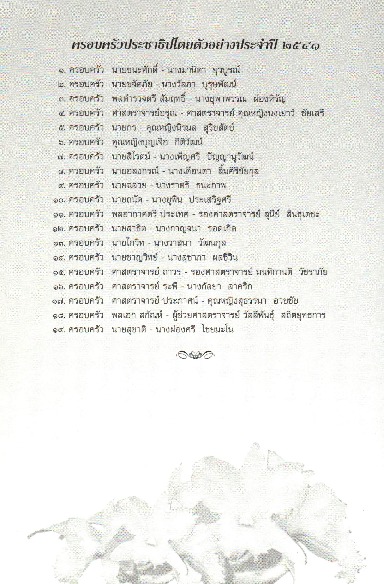 ครอบครัวประชาธิปไตยตัวอย่างประจำปี ๒๕๔๑
๑. ครอบครัว นายชนะศักดิ์ - นางมานิดา ยุวบูรณ์
๒. ครอบครัว นายขจัดภัย - นางวัลภา บุรุษพัฒน์
๓. ครอบครัว พลตำรวจตรี สัมฤทธิ์ - นางยุพาพรรณ ผ่องหิรัญ
๔. ครอบครัว ศาสตราจารย์อรุณ - ศาสตราจารย์ คุณหญิงนงเยาว์ ชัยเสรี
๕. ครอบครัว นายกร - คุณหญิงนิรมล สุริยสัตย์
๖. ครอบครัว คุณหญิงบุญเรือ กิติวัฒน์
๗. ครอบครัว นายสิโรตม์ - นางเพ็ญศรี ปัญญานุวัฒน์
๘. ครอบครัว นายอลงกรณ์ - นางเตือนตา ลิ้มศิริชัยกุล
๙. ครอบครัว นายฉลวย - นางราตรี ธนะภาพ
๑๐. ครอบครัว นายถนัด - นางยุพิน ประเสริฐศรี
๑๑. ครอบครัว พลอากาศตรี ประเทศ - รองศาสตราจารย์ สุนีย์ สินธุเดชะ
๑๒. ครอบครัว นายสาธิต - นางกาญจนา รอดเกิด
๑๓. ครอบครัว นายโกวิท - นางวาสนา วัฒนกุล
๑๔. ครอบครัว นายชาญวิทย์ - นางสุชาภา ผลชีวิน
๑๕. ครอบครัว ศาสตราจารย์ ถาวร - รองศาสตราจารย์ นนทิกานต์ วัชราภัย
๑๖. ครอบครัว ศาสตราจารย์ ระพี - นางกัลยา สาคริก
๑๗. ครอบครัว ศาสตราจารย์ ประภาศน์ - คุณหญิงสุธรรมา อวยชัย
๑๘. ครอบครัว พลเอก สกัณห์ - ผู้ช่วยศาสตราจารย์ วัลลีพันธุ์ สถิตยุทธการ
๑๙. ครอบครัว นายสุชาติ - นางผ่องศรี ไชยมะโน